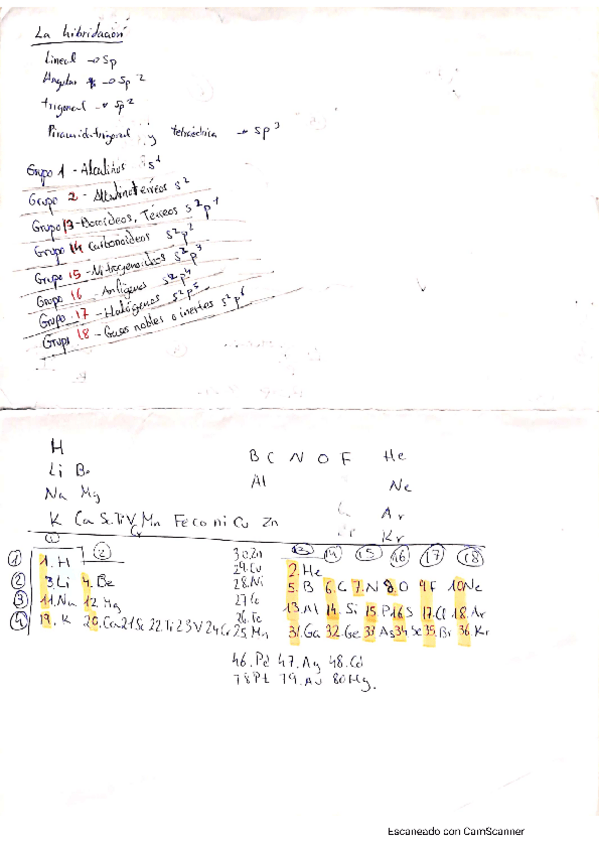 La hibridación
Lineal → sp
Angular → sp2
trigonal → sp2
Piramidetrigonal y tetraédrica → sp3
Grupo 1 - Alcalinos s1
Grupo 2 - Alcalinotérreos s2
Grupo 13 - Boroideos, Térreos s2p1
Grupo 14 Carbonoideos s2p2
Grupo 15 - Nitrogenoideos s2p3
Grupo 16 - Anfígenos s2p4
Grupo 17 - Halógenos s2p5
Grupo 18 - Gases nobles o inertes s2p6
H
Li Be B C N O F He
Na Mg Al Ne
Ar
K Ca Sc Ti V Cr Mn Fe Co Ni Cu Zn Kr
1 2 13 14 15 16 17 18
1 1.H 30.Zn 2.He
29.Cu
2 3.Li 4.Be 28.Ni 5.B 6.C 7.N 8.O 9.F 10.Ne
3 11.Na 12.Mg 27.Co 13.Al 14.Si 15.P 16.S 17.Cl 18.Ar
26.Fe
4 19.K 20.Ca 21.Sc 22.Ti 23.V 24.Cr 25.Mn 31.Ga 32.Ge 33.As 34.Se 35.Br 36.Kr
46.Pd 47.Ag 48.Cd
78Pt 79.Au 80Hg.
Escaneado con CamScanner